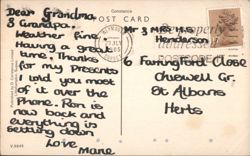 Constance
POST CARD
Dear Grandma
& Grandpa.
Weather fine.
Having a great
time. Thanks
for my presents
I told you most
of it over the
Phone. Ron is
now back and
everything is
setting down
Love
Marie
Mr & Mrs H S
Henderson
6 Farringford Close
Chiswell Gr.
St Albans
Herts
properly
addressed